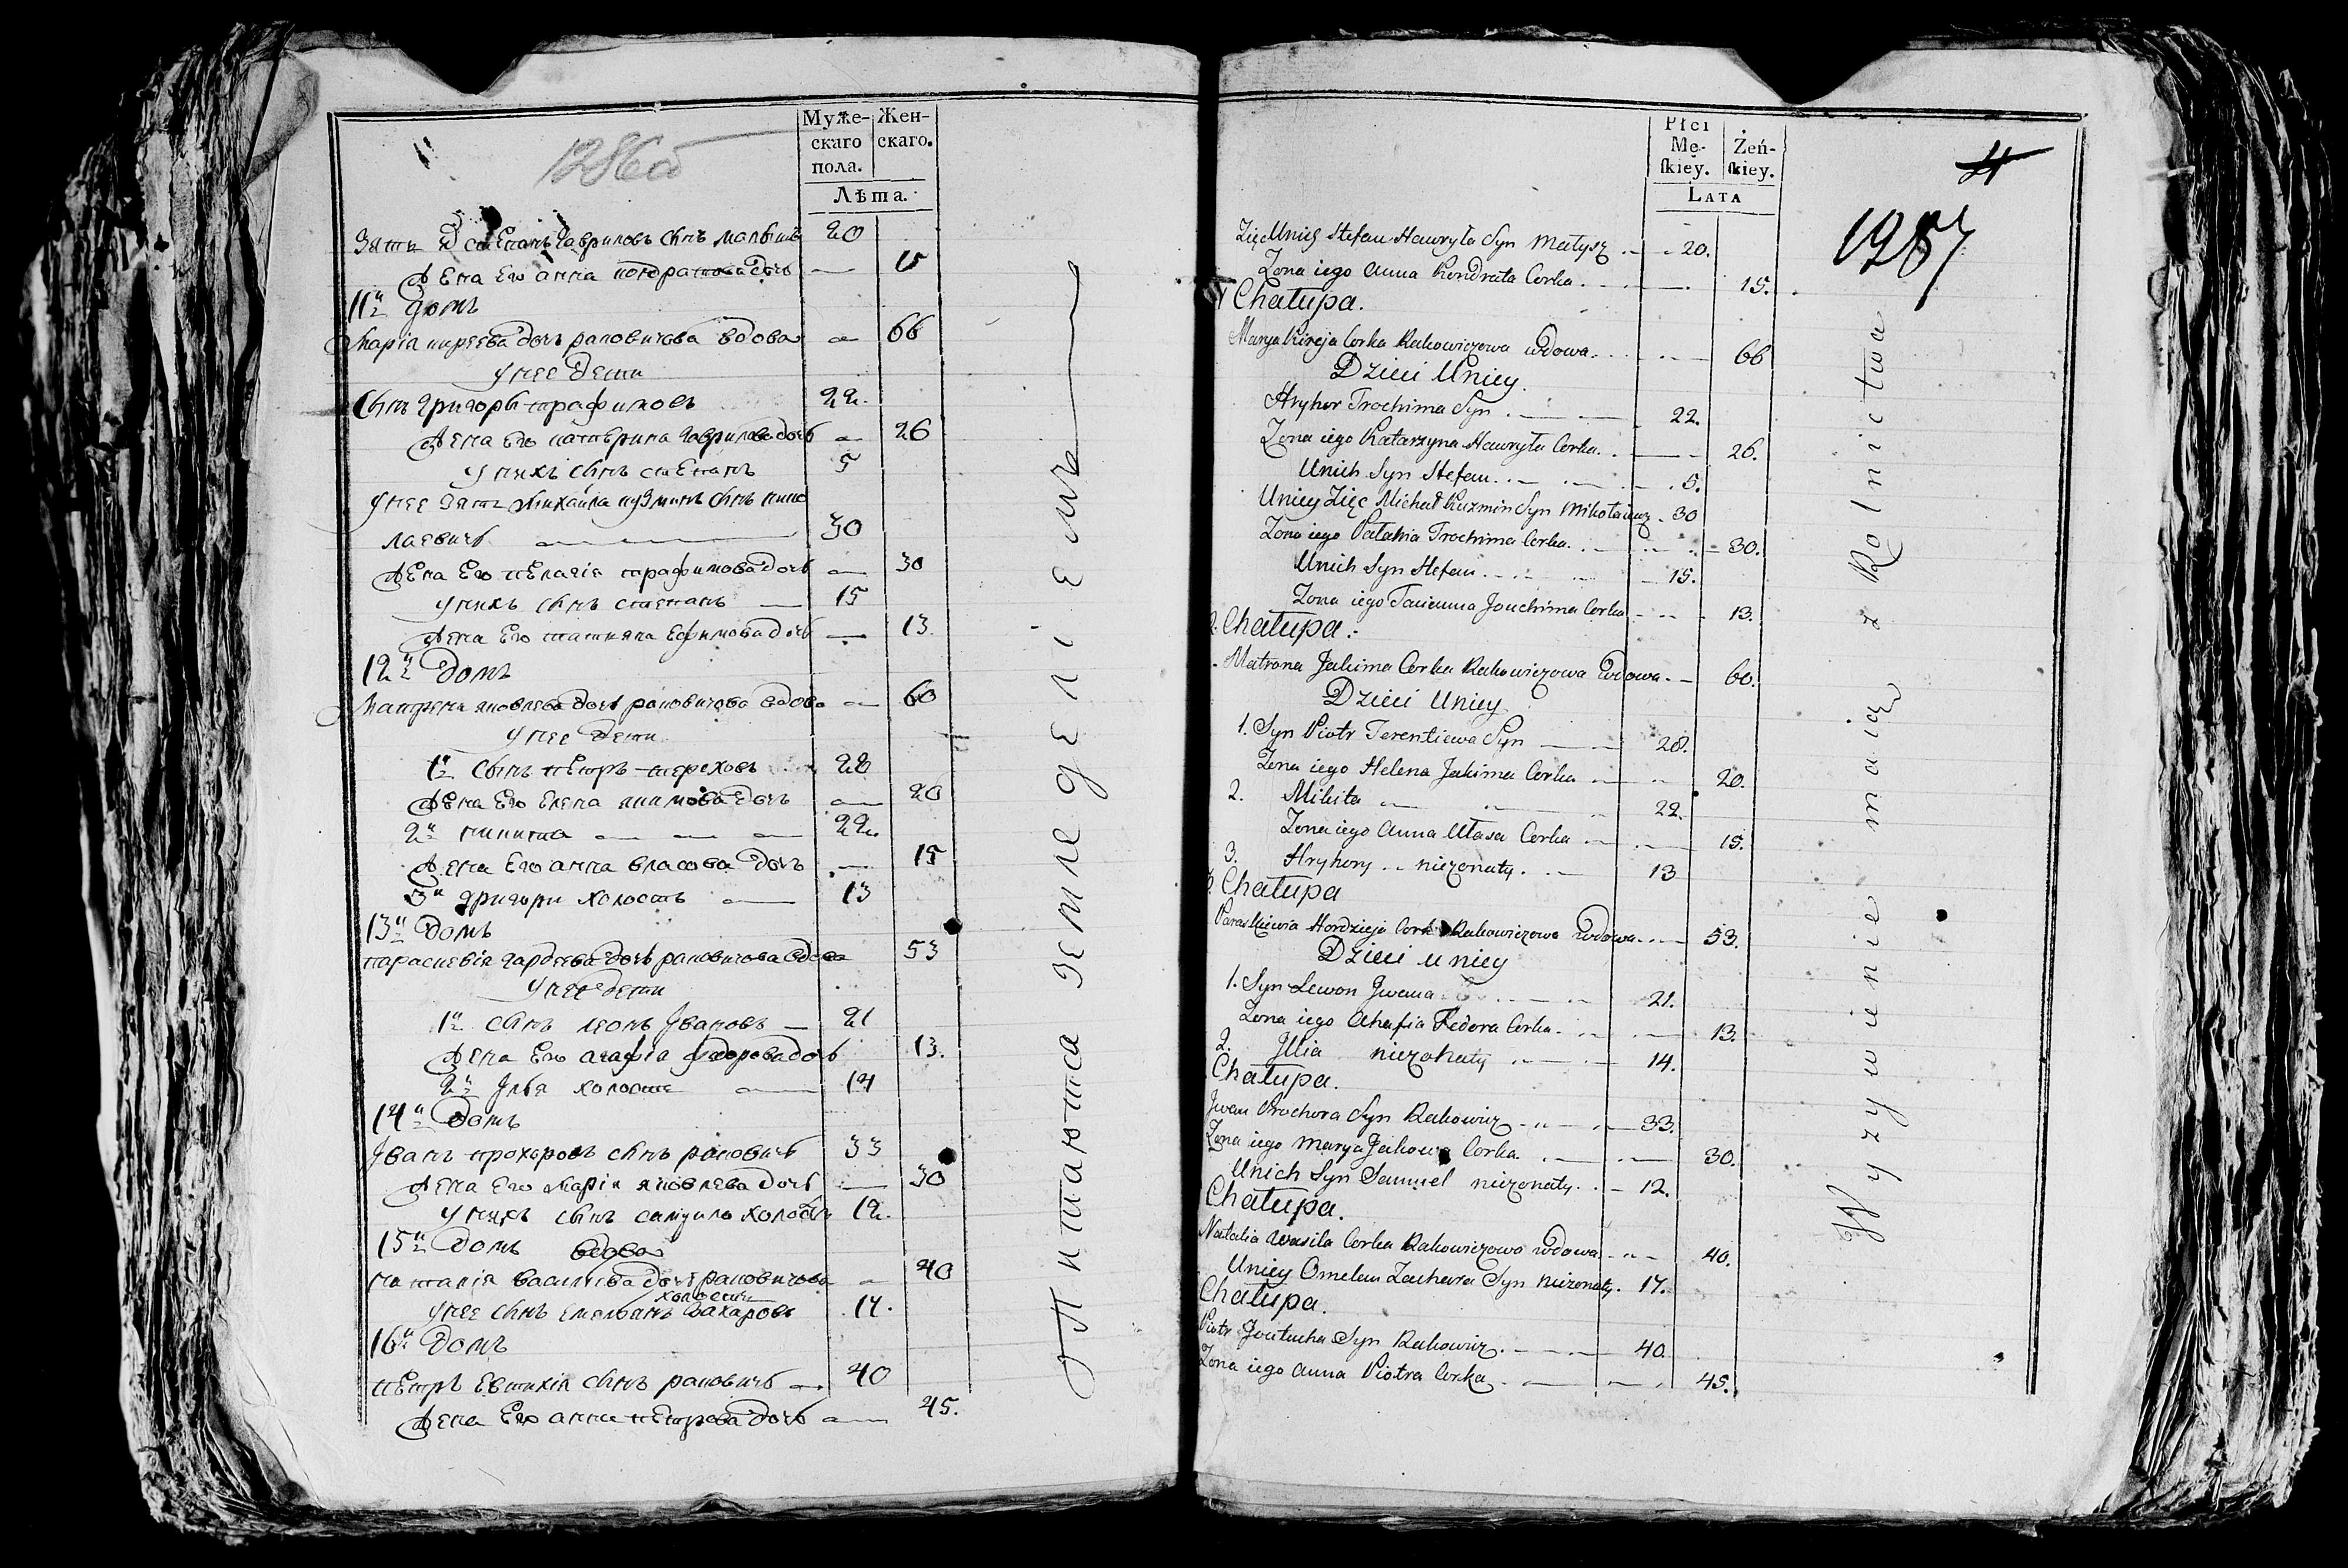 1286об
Муже-
скаго
пола.
Жен-
скаго.
Лѣта.
зять Степанъ Гавриловъ сынъ 20
жена его анна кондратова дочь — 15
11й домъ
Марiя кирѣева дочь раковичова вдова — 66
у нее дети
сынъ Григорь трафимовъ 22.
жена его катерина гаврилова дочь — 26
у нихъ сынъ степанъ 5
у нее зять Михайла кузминъ сынъ нико
лаевичь — 30
жена его пелагiя трафимова дочь — 30
у нихъ сынъ степанъ — 15
жена его татияна ефимова дочь — 13.
12й домъ
яковлева дочь раковичова вдова — 60
у нее дети
1й сынъ петръ тереховъ 28
жена его елена якимова дочь — 20
2й никита — — — 22.
жена его анна власова дочь — 15
3й григори холостъ — 13
13й домъ
параскевiя гардеева дочь раковичова вдова 53
у нее дети
1й сынъ леонъ Ивановъ — 21
жена его агафiя федорова дочь 13.
2й Илья холостъ — 14
14й домъ
Иванъ прохоровъ сынъ раковичь 33
жена его Марiя яковлева дочь — 30
у нихъ сынъ самуило холостъ 12.
15й домъ вдова
наталiя василева дочь раковичова — 40
холостъ
у нее сынъ емельянъ захаровъ 17.
16й домъ
петръ евтихiя сынъ раковичь — 40
жена его анна петрова дочь — 45.
Питаются земледелiемъ
Płci
Mę-
skiey.
Żeń-
skiey.
Lata
4
1287
Zięc Unich Stefan Hawryła Syn Matysz — 20.
Zona iego Anna Kondrata Corka — 15.
Chałupa.
Marya Kireja Corka Rakowiczowa wdowa — 66
Dzieci Uniey.
Hryhor Trochima Syn — 22.
Zona iego Katarzyna Hawryła Corka — 26.
Unich Syn Stefan — 5.
Uniey Zięc Michał Kuzmin Syn Mikołaiewicz. 30
Zona iego Pałahia Trochima Corka — 30.
Unich Syn Stefan — 15.
Zona iego Tacianna Jouchima Corka — 13.
Chałupa.
Matrona Jakima Corka Rakowiczowa wdowa — 60.
Dzieci Uniey
1. Syn Piotr Terentiewa Syn — 28.
Zona iego Helena Jakima Corka — 20.
2. Mikita — 22.
Zona iego Anna Ułasa Corka — 15.
3. Hryhory niezonaty — 13
Chałupa
Paraskiewia Hordzieja Corka Rakowiczowa wdowa — 53.
Dzieci uniey
1. Syn Lewon Jwana — 21.
Zona iego Ahafia Fedora Corka — 13.
2. Jllia niezonaty — 14.
Chałupa.
Jwan Prochora Syn Rakowicz — 33.
Zona iego Marya Jakowa Corka — 30.
Unich Syn Samuel niezonaty — 12.
Chałupa.
Natalia Wasila Corka Rakowiczowa wdowa — 40.
Uniey Omelan Zachara Syn niezonaty. 17.
Chałupa.
Piotr Jeutucha Syn Rakowicz — 40.
Zona iego Anna Piotra Corka — 45.
Wyzywienie maią z Rolnictwa